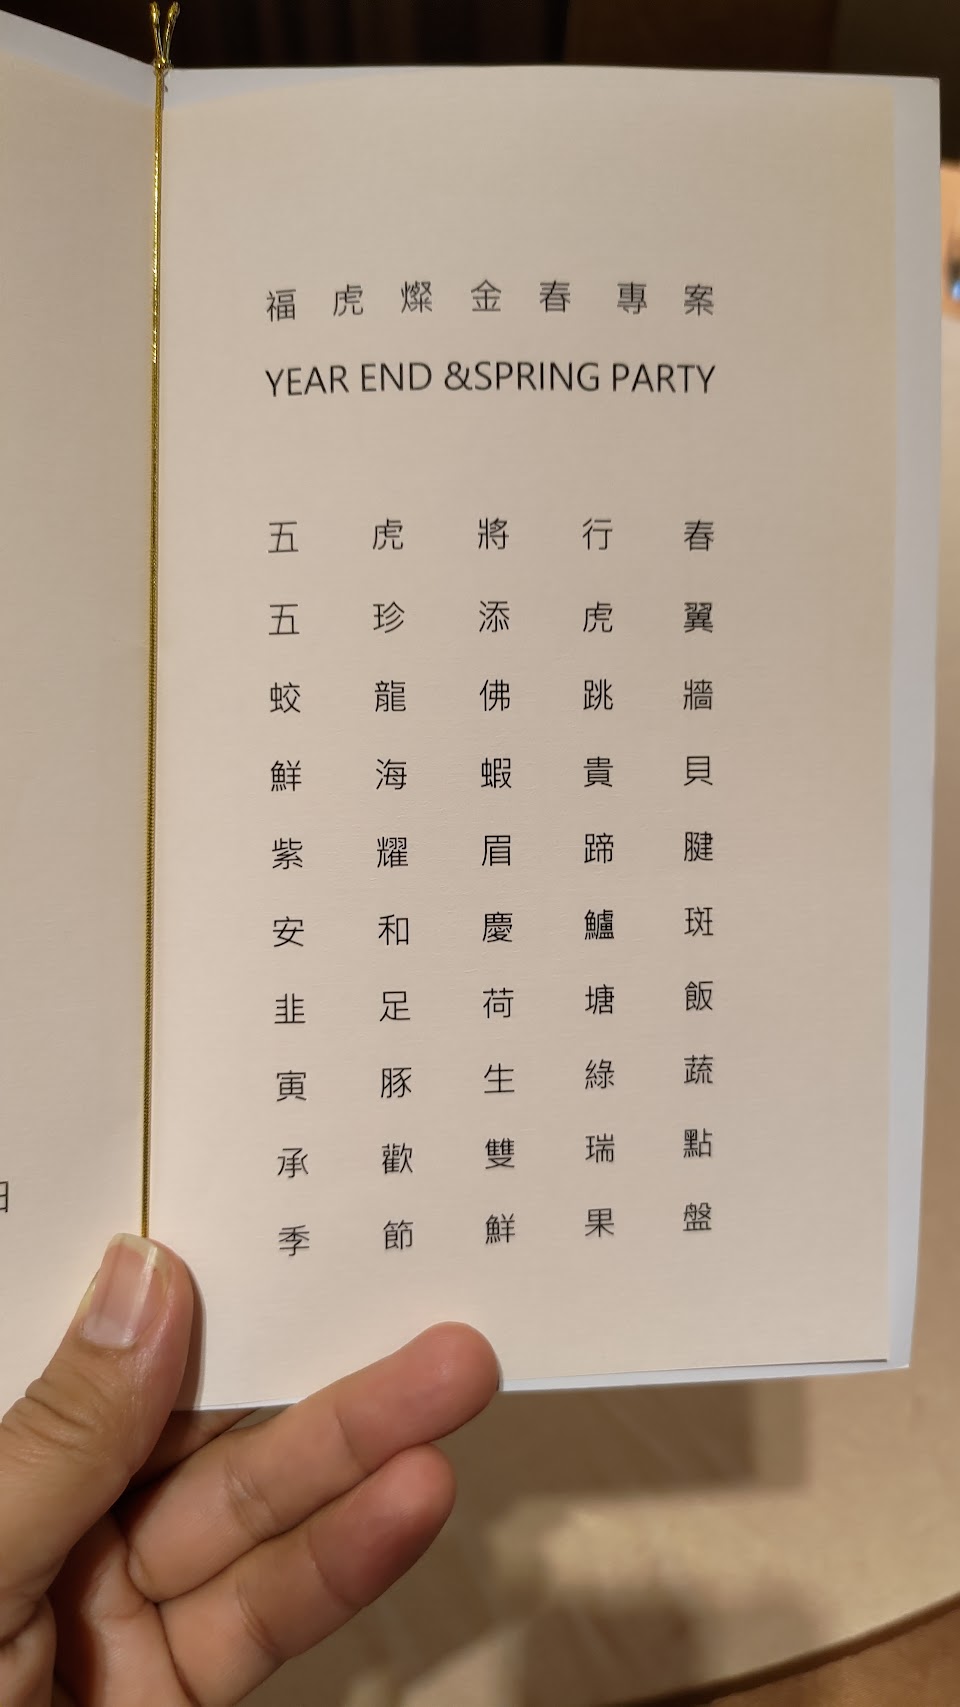 福虎燦金春專案
YEAR END &SPRING PARTY
五虎將行春
五珍添虎翼
蛟龍佛跳牆
鮮海蝦貴貝
紫耀眉蹄腱
安和慶鱸斑
韭足荷塘飯
寅豚生綠蔬
承歡雙瑞點
季節鮮果盤